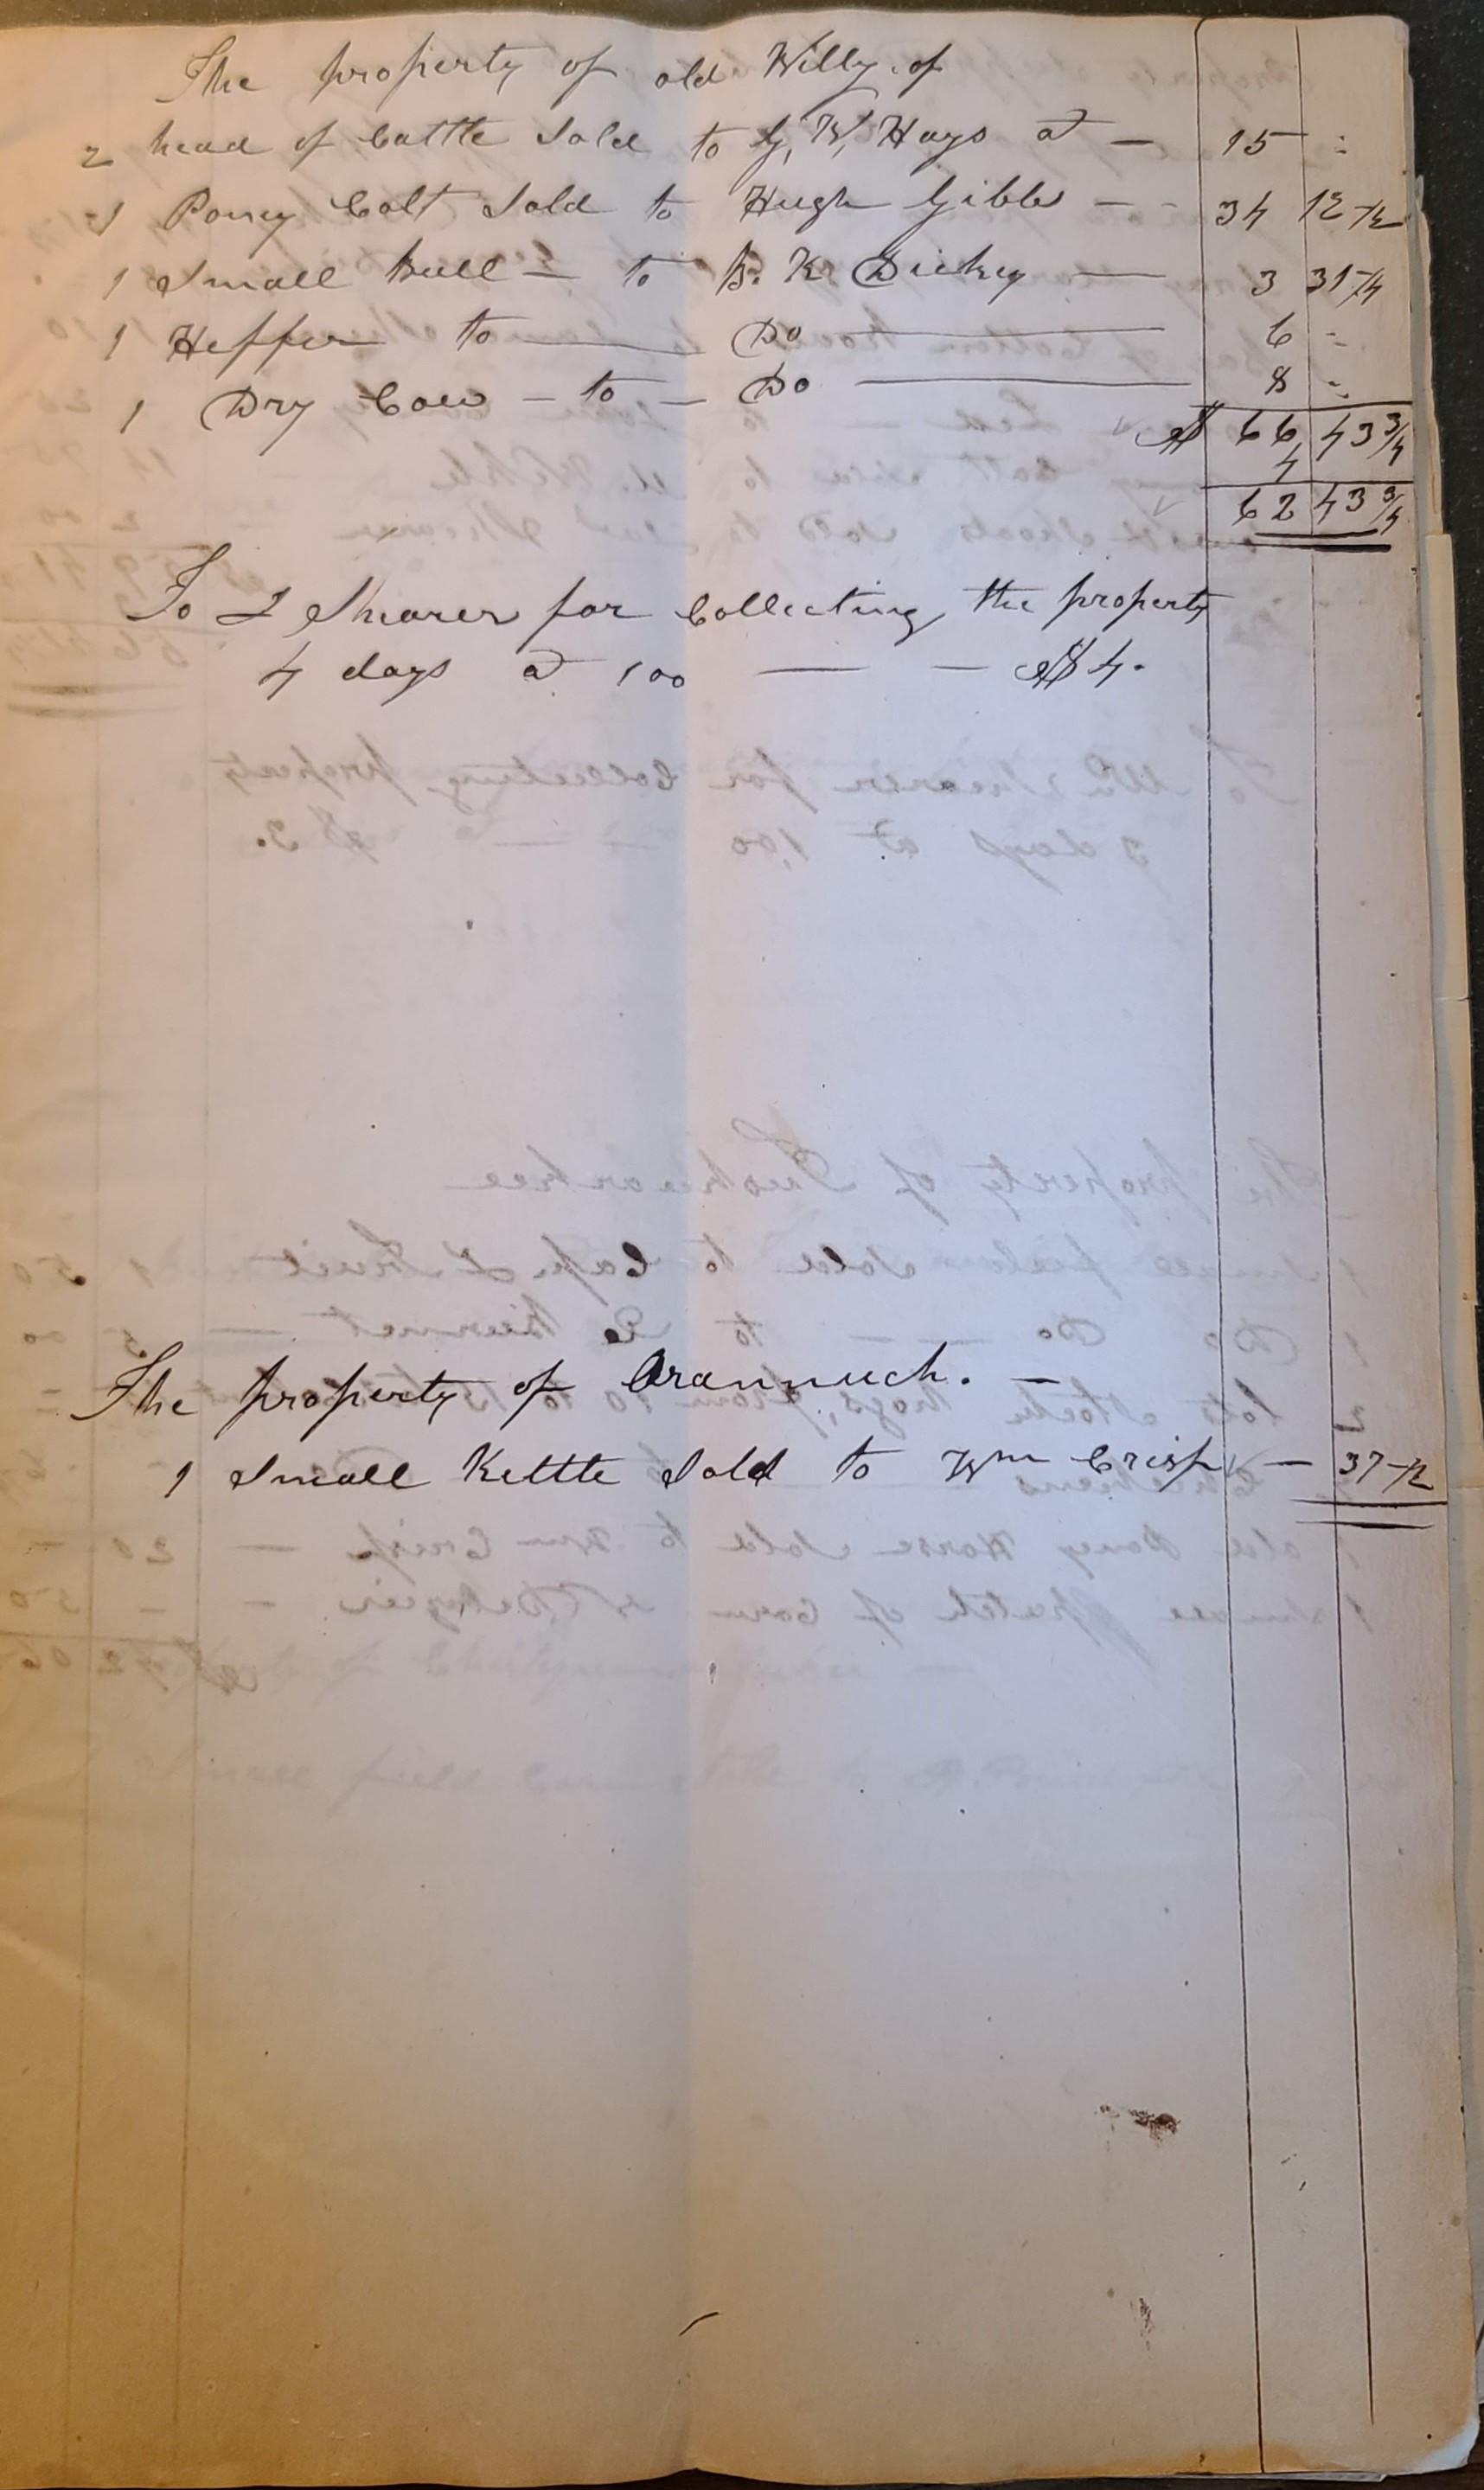 The property of old Willy. of
2 head of Cattle Sold to G, W, Hays at — 15 =
1 Poney Colt Sold to Hugh Gibbs — - 34 12 1/2
1 Small Bull — to B. K. Dickey — 3 31 1/4
1 Heffer to — Do — 6 =
1 Dry Cow — to — Do — 8 =
$ 66 43 3/4
4
62 43 3/4
To I Shearer for Collecting the property
4 days at 100 — — $4.
The property of Arannuch. —
1 Small Kettle Sold to Wm Crisp — 37 1/2